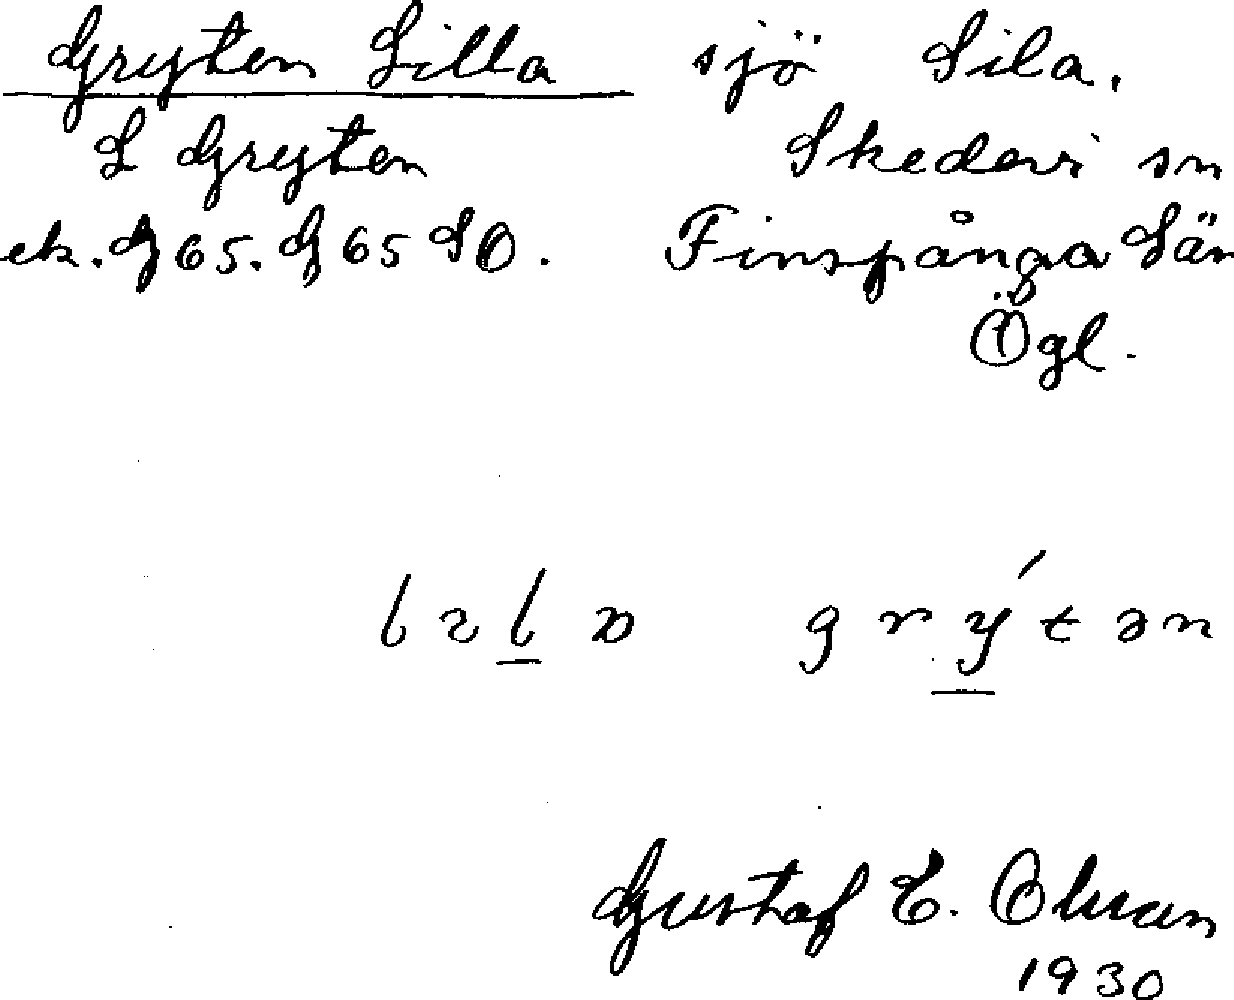 Gryten Lilla sjö Sila.
L Gryten Skedevi sn
ek. G 65. G 65 SO. Finspånga Län
Ögl.
lɩlа grýtən
Gustaf E. Olsson
1930